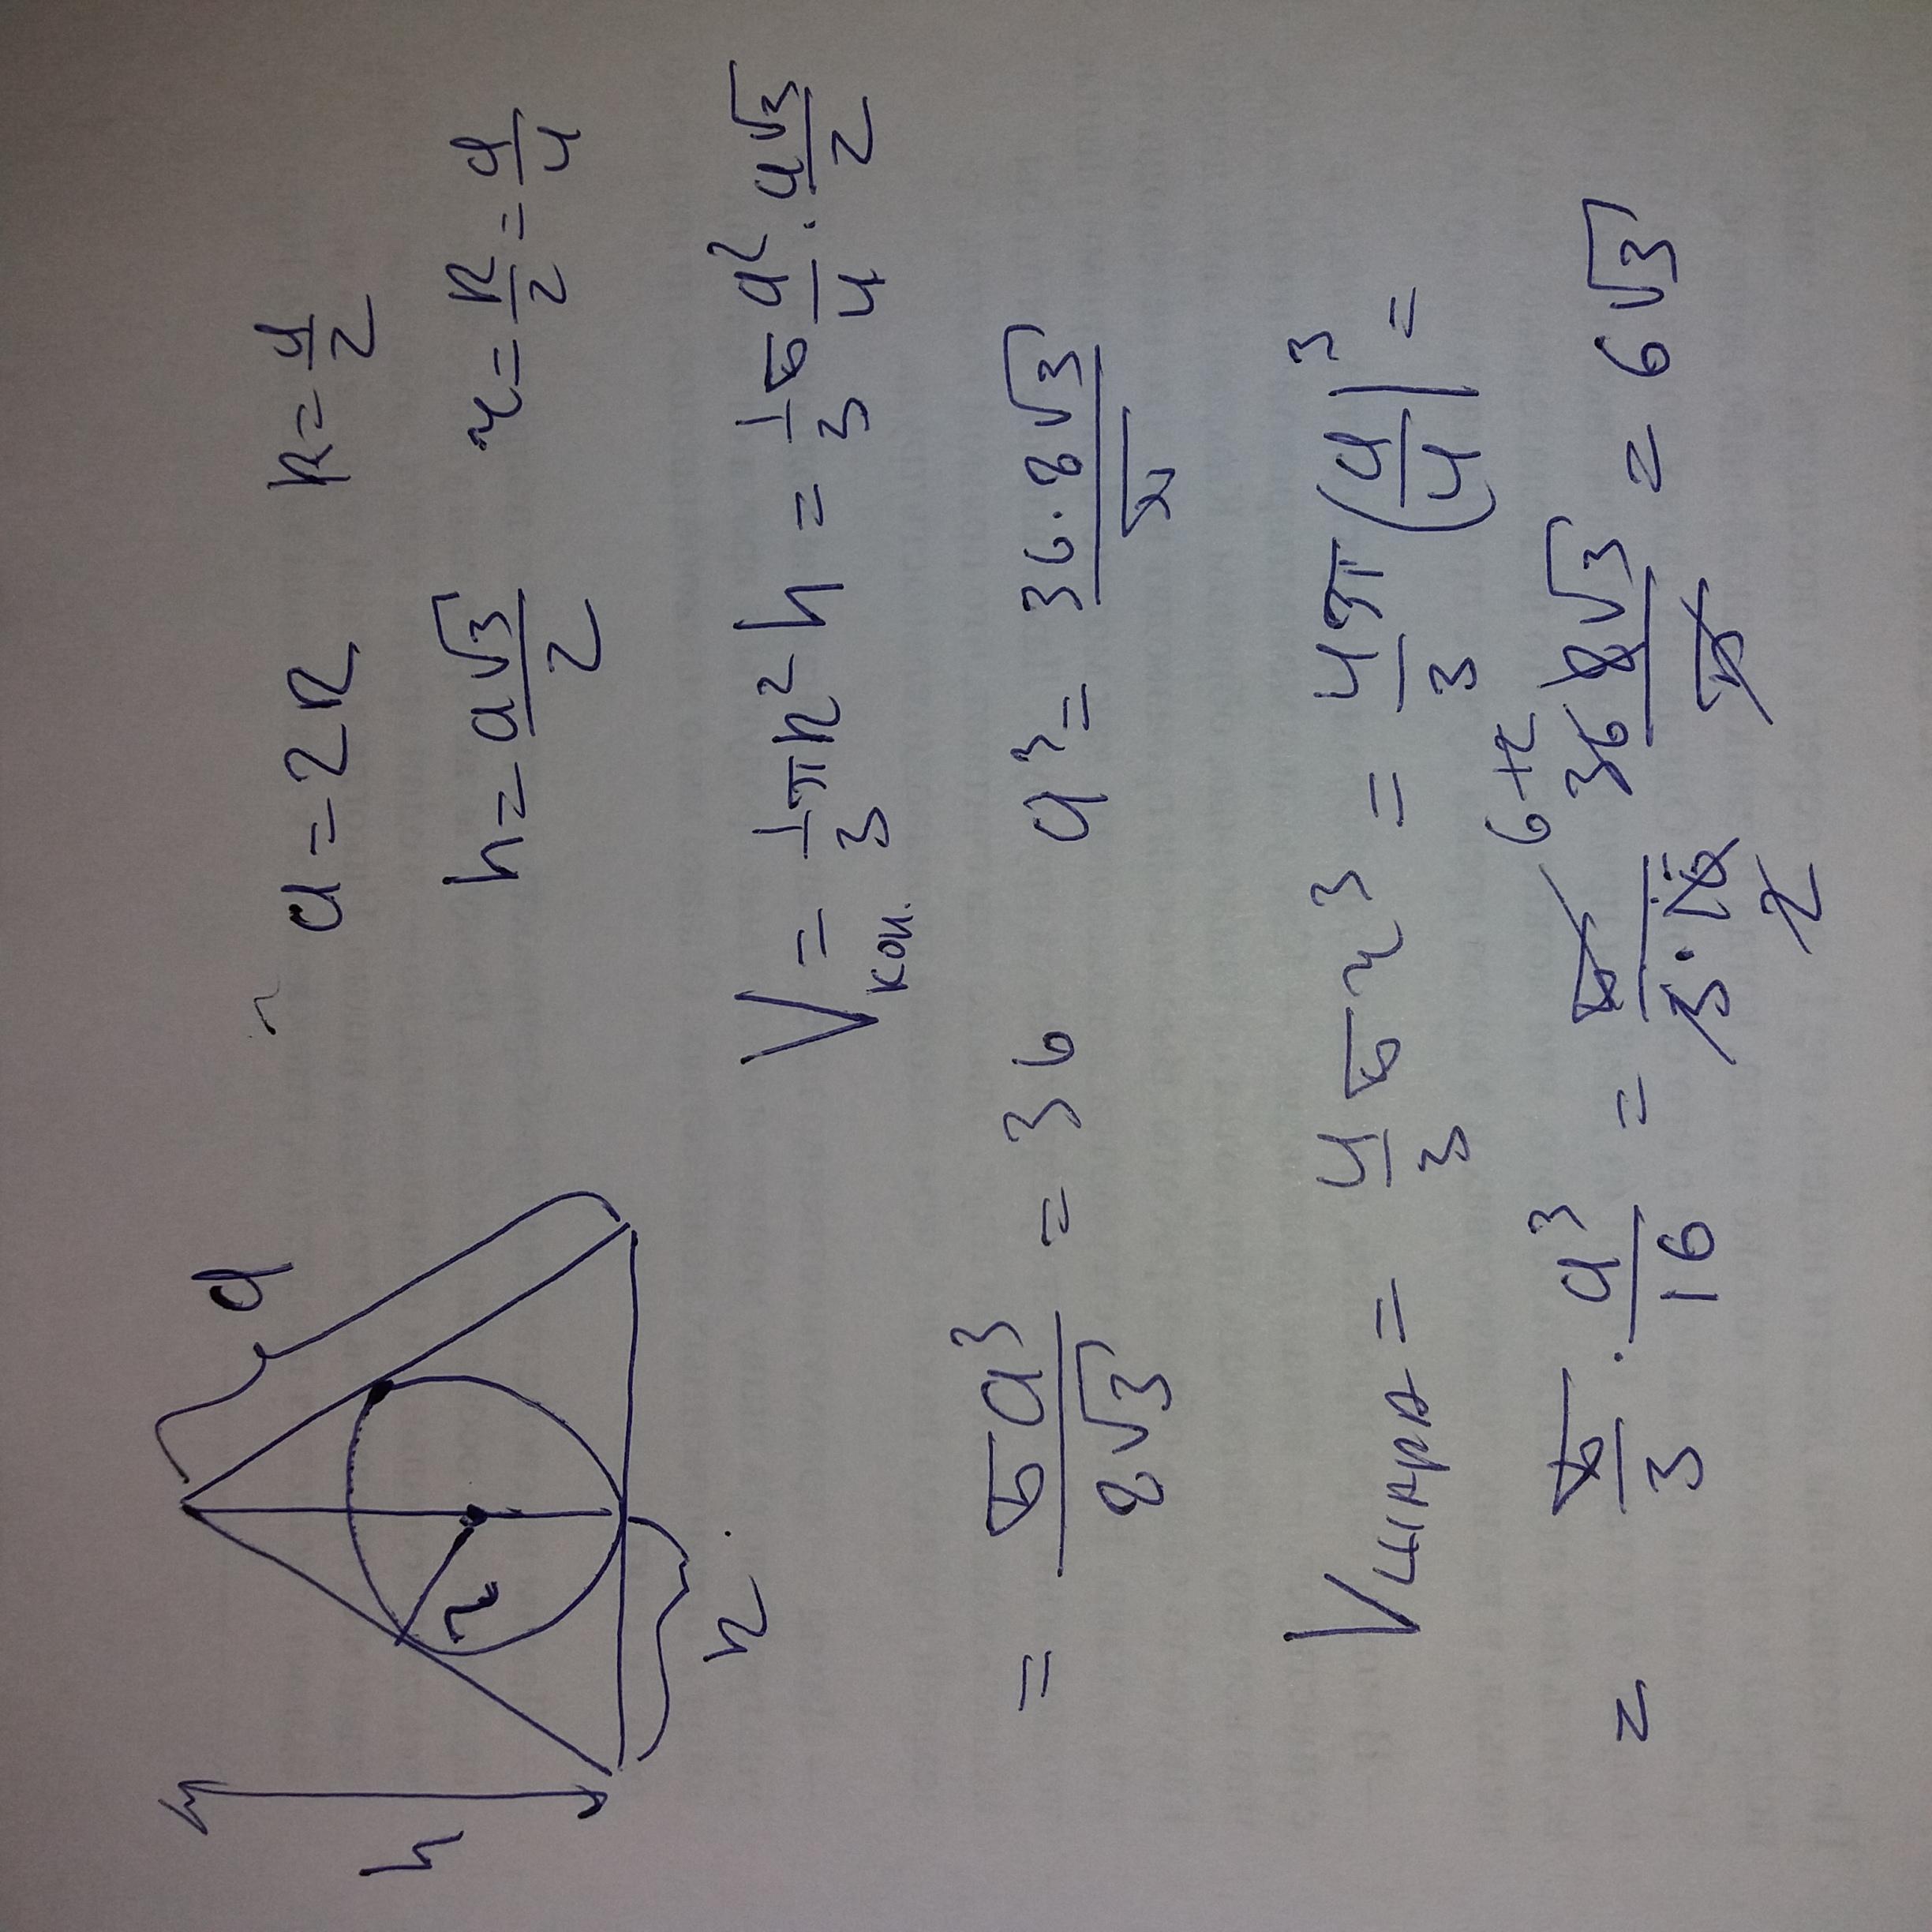 h a r R
a = 2R R = a/2
h = a√3/2 r = R/2 = a/4
V кон. = 1/3 πR² h = 1/3 π a²/4 · a√3/2
= πa³/8√3 = 36 a³ = 36·8√3/π
Vшара = 4/3 πr³ = 4π/3 (a/4)³ =
= π/3 · a³/16 = π/3·16 36 8√3/π = 6√3